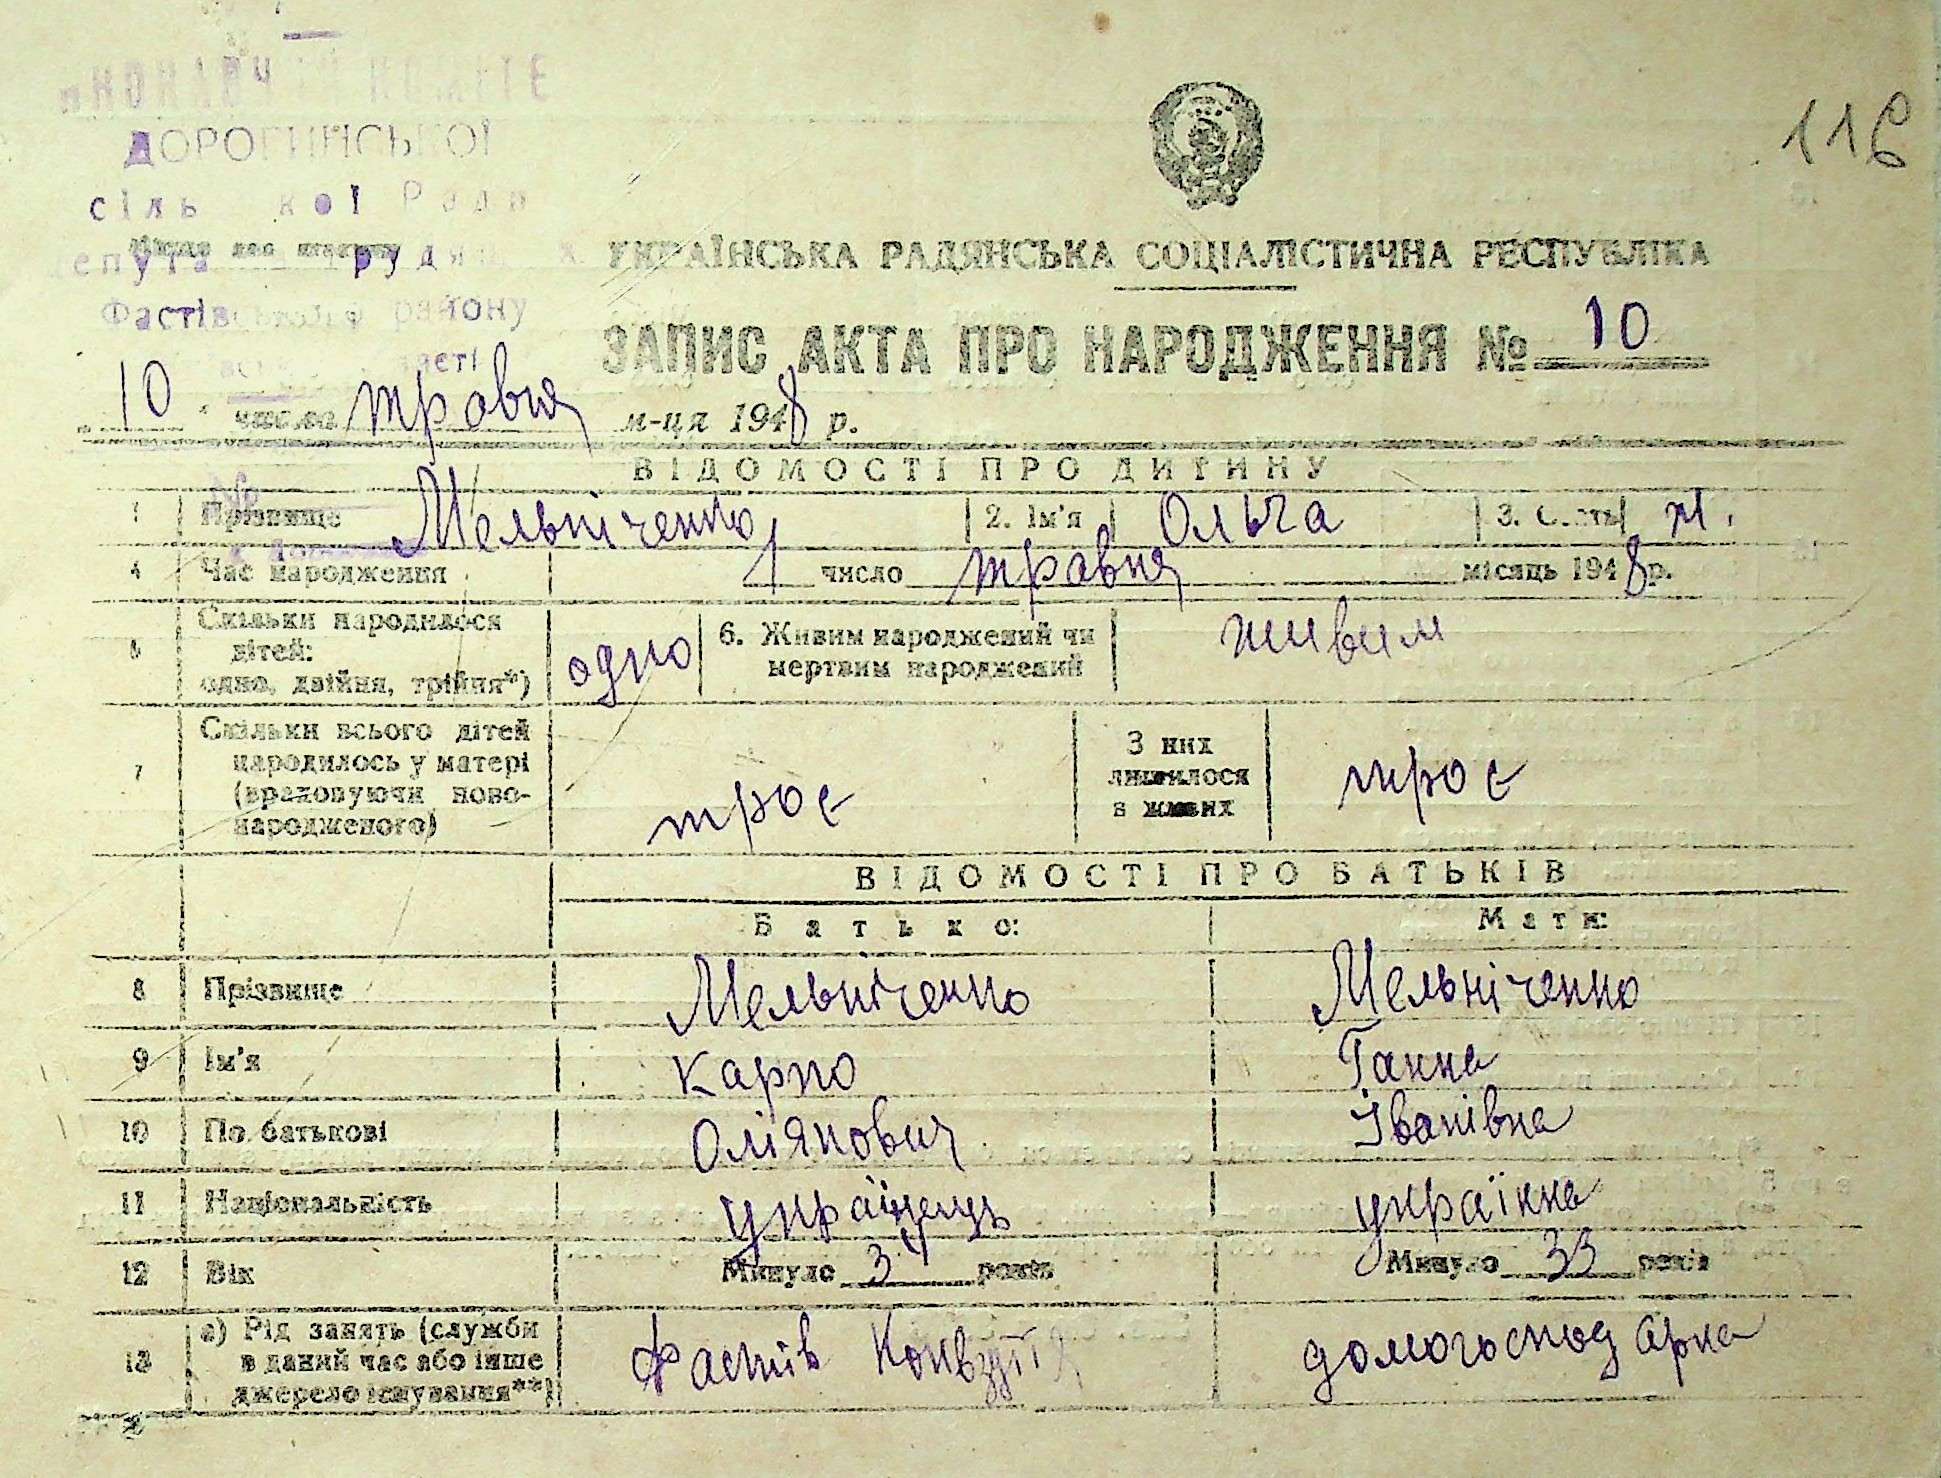 ДОРОГИНСЬКОЇ
116
УКРАЇНСЬКА РАДЯНСЬКА СОЦІАЛІСТИЧНА РЕСПУБЛІКА
Фастівського району
ЗАПИС АКТА ПРО НАРОДЖЕННЯ № 10
10 числа травня м-ця 1948 р.
ВІДОМОСТІ ПРО ДИТИНУ
1 Прізвище Мельніченко 2. Ім'я Ольга 3. Стать ж.
4 Час народження 1 число травня місяць 1948 р.
5 Скільки народилося
дітей:
одно, двійня, трійня*)
одно
6. Живим народжений чи
мертвим народжений
живим
7 Скільки всього дітей
народилось у матері
(враховуючи ново-
народженого)
троє
З них
лишилося
в живих
троє
ВІДОМОСТІ ПРО БАТЬКІВ
Батько: Мати:
8 Прізвище Мельніченко Мельніченко
9 Ім'я Карпо Ганна
10 По батькові Оліянович Іванівна
11 Національність українець українка
12 Вік Минуло років Минуло 33 років
13 а) Рід занять (служби
в даний час або інше
джерело існування**)
Фастів
домогосподарка